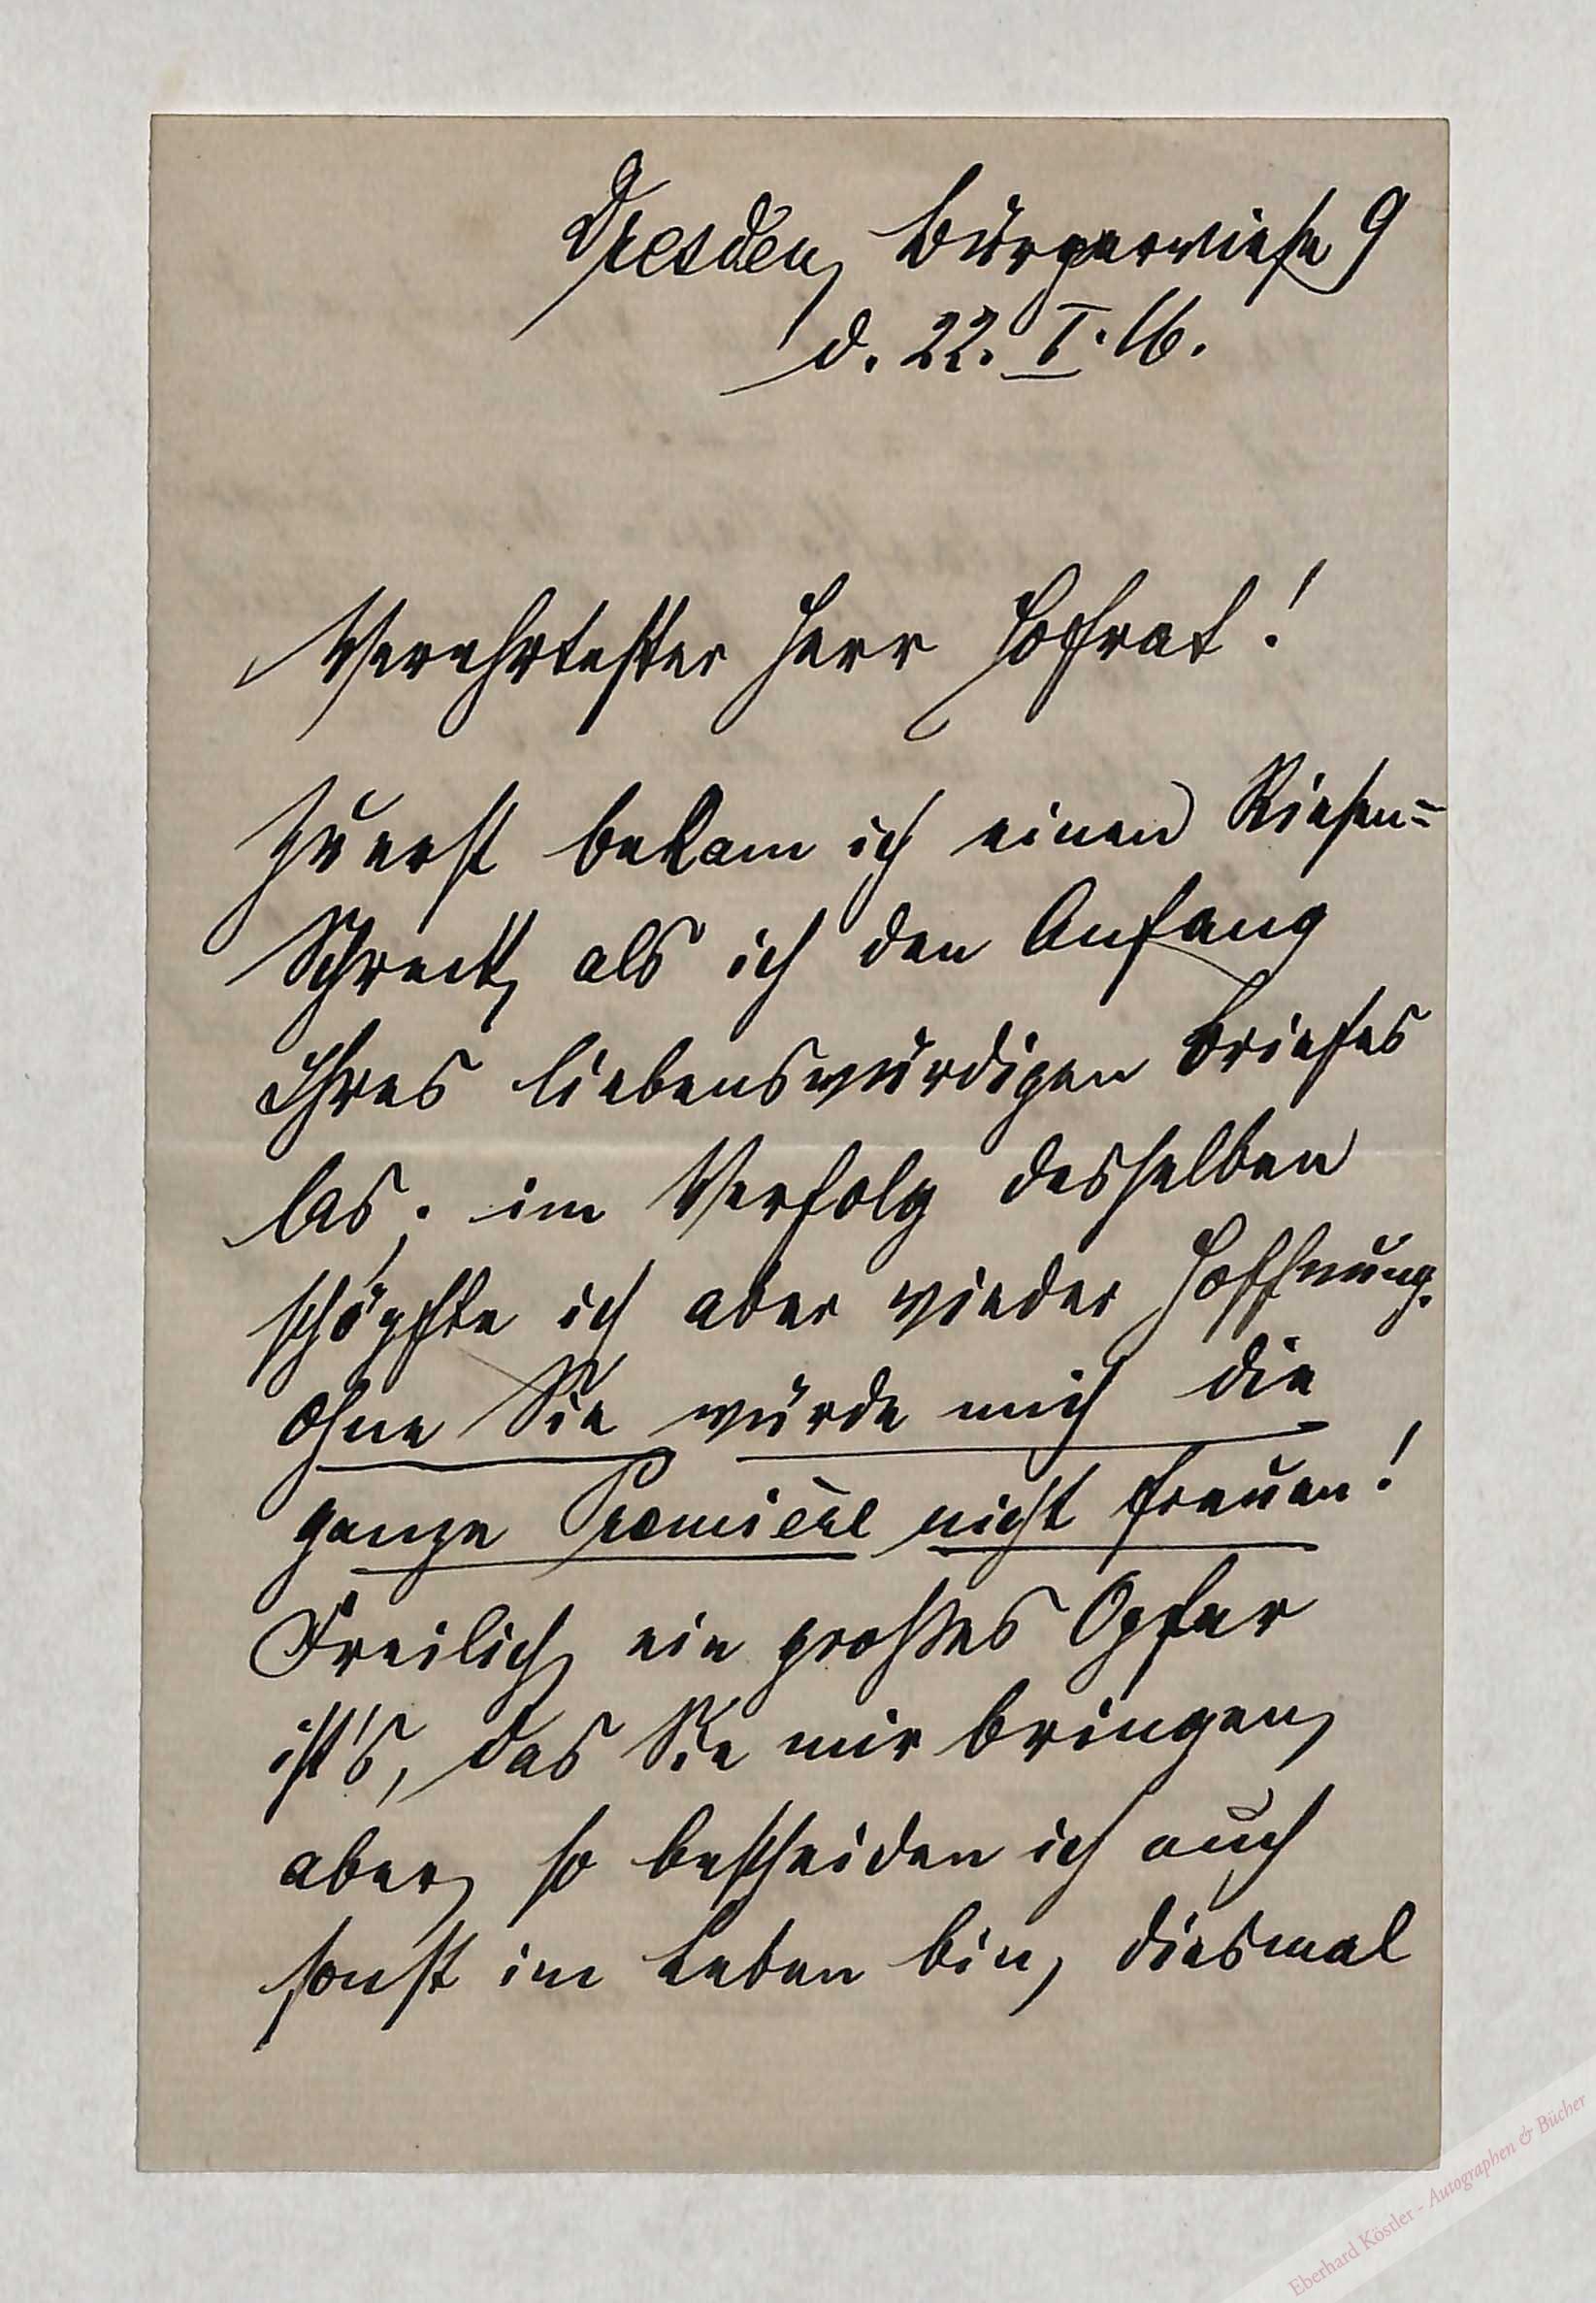 Dresden, Bürgerwiese 9
d. 22. I. 16.
Verehrtester Herr Hofrat!
Zuerst bekam ich einen Riesen=
Schreck, als ich den Anfang
Ihres liebenswürdigen Briefes
las; im Verfolg desselben
schöpfte ich aber wieder Hoffnung.
Ohne Sie würde mich die
ganze Première nicht freuen!
Freilich, ein großes Opfer
ist's, das Sie mir bringen,
aber, so bescheiden ich auch
sonst im Leben bin, diesmal
Eberhard Köstler - Autographen & Bücher